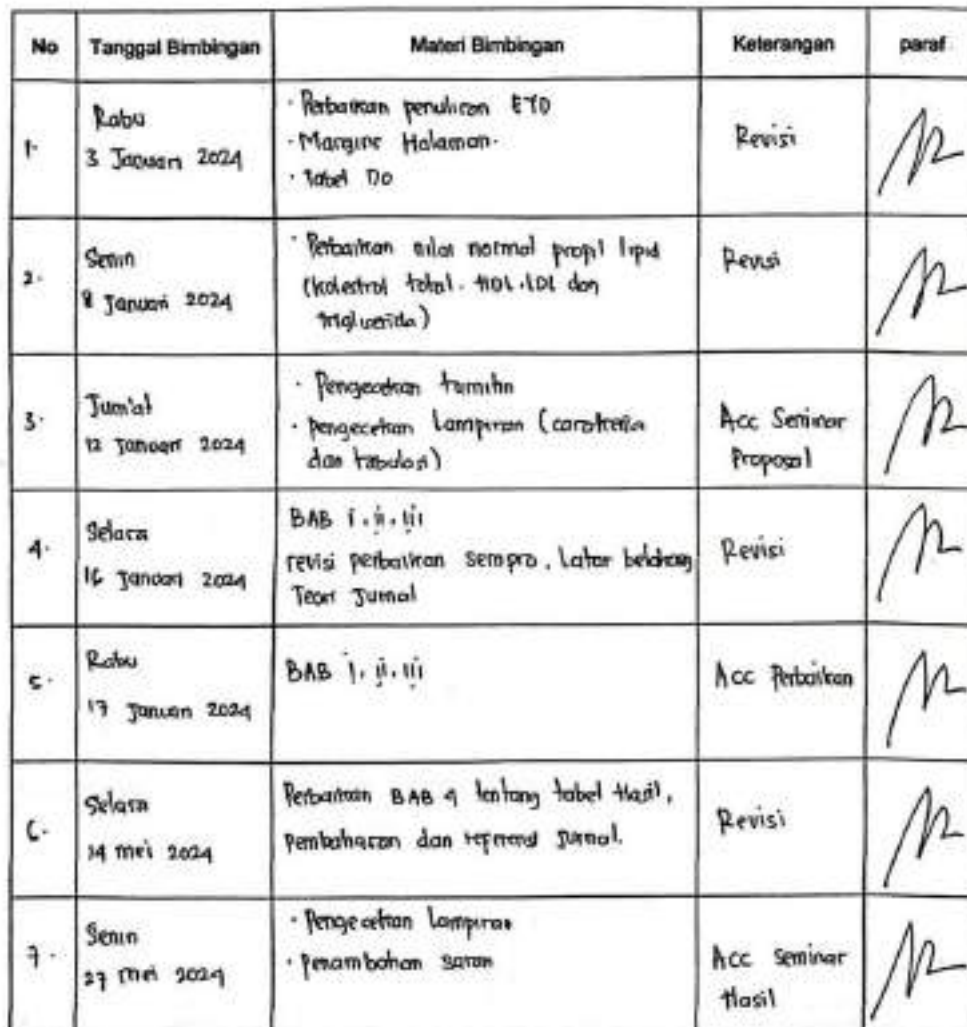 No Tanggal Bimbingan Materi Bimbingan Keterangan paraf
1. Rabu
3 Januari 2024
· Perbaikan penulisan EYD
· Margine Halaman.
· Tabel
Revisi
2. Senin
8 Januari 2024
· Perbaikan nilai normal propil lipid
(kolestrol total. HDL. LDL dan
trigliserida)
Revisi
3. Jum'at
12 Januari 2024
· Pengecekan
· pengecekan Lampiran (
dan tabulasi)
Acc Seminar
Proposal
4. Selasa
16 Januari 2024
BAB i, ii, iii
revisi perbaikan sempro, Latar belakang
Teori Jurnal
Revisi
5. Rabu
17 Januari 2024
BAB i, ii, iii
Acc Perbaikan
6. Selasa
14 mei 2024
Perbaikan BAB 4 tentang tabel Hasil,
Pembahasan dan referensi Jurnal.
Revisi
7. Senin
27 mei 2024
· Pengecekan Lampiran
· penambahan saran
Acc Seminar
Hasil